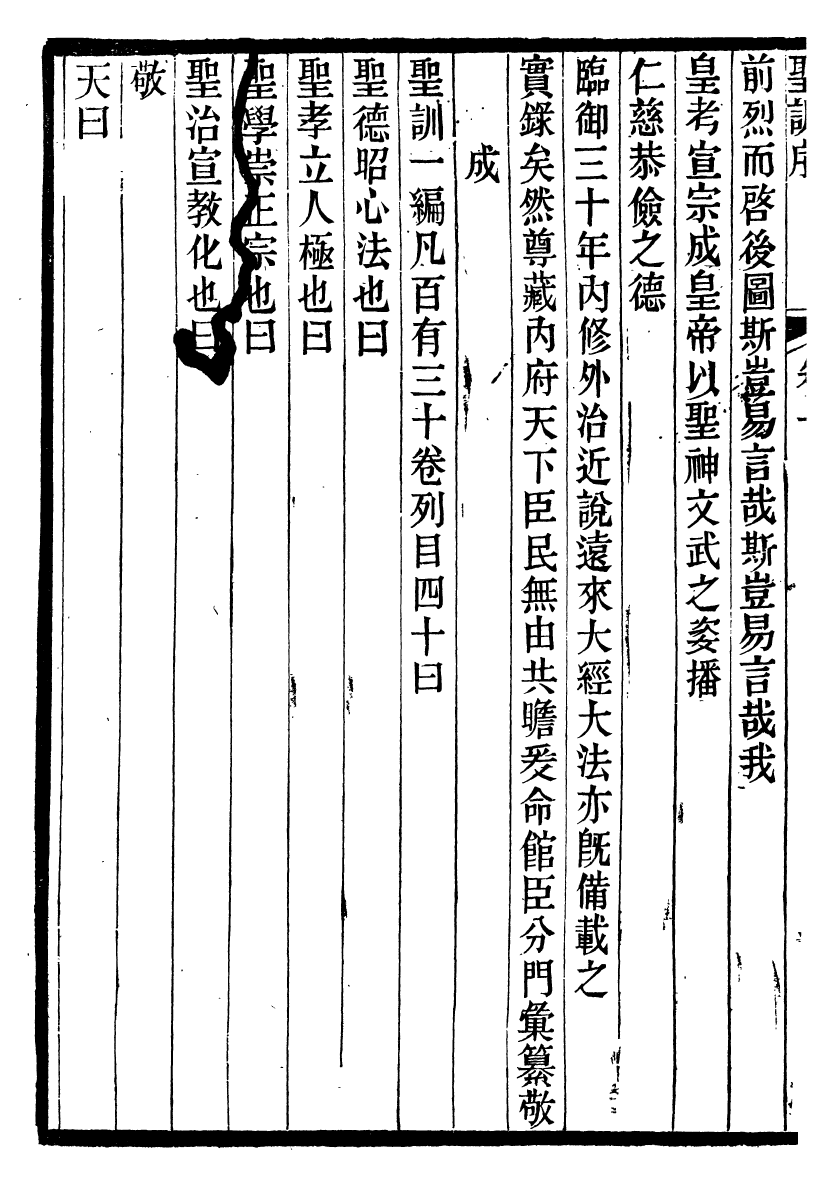 聖訓序
前烈而啓後圖斯豈易言哉斯豈易言哉我
皇考宣宗成皇帝以聖神文武之姿播
仁慈恭儉之德
臨御三十年內修外治近說遠來大經大法亦旣備載之
實錄矣然尊藏內府天下臣民無由共瞻爰命館臣分門彙纂敬
成
聖訓一編凡百有三十卷列目四十曰
聖德昭心法也曰
聖孝立人極也曰
聖學崇正宗也曰
聖治宣教化也曰
敬
天曰